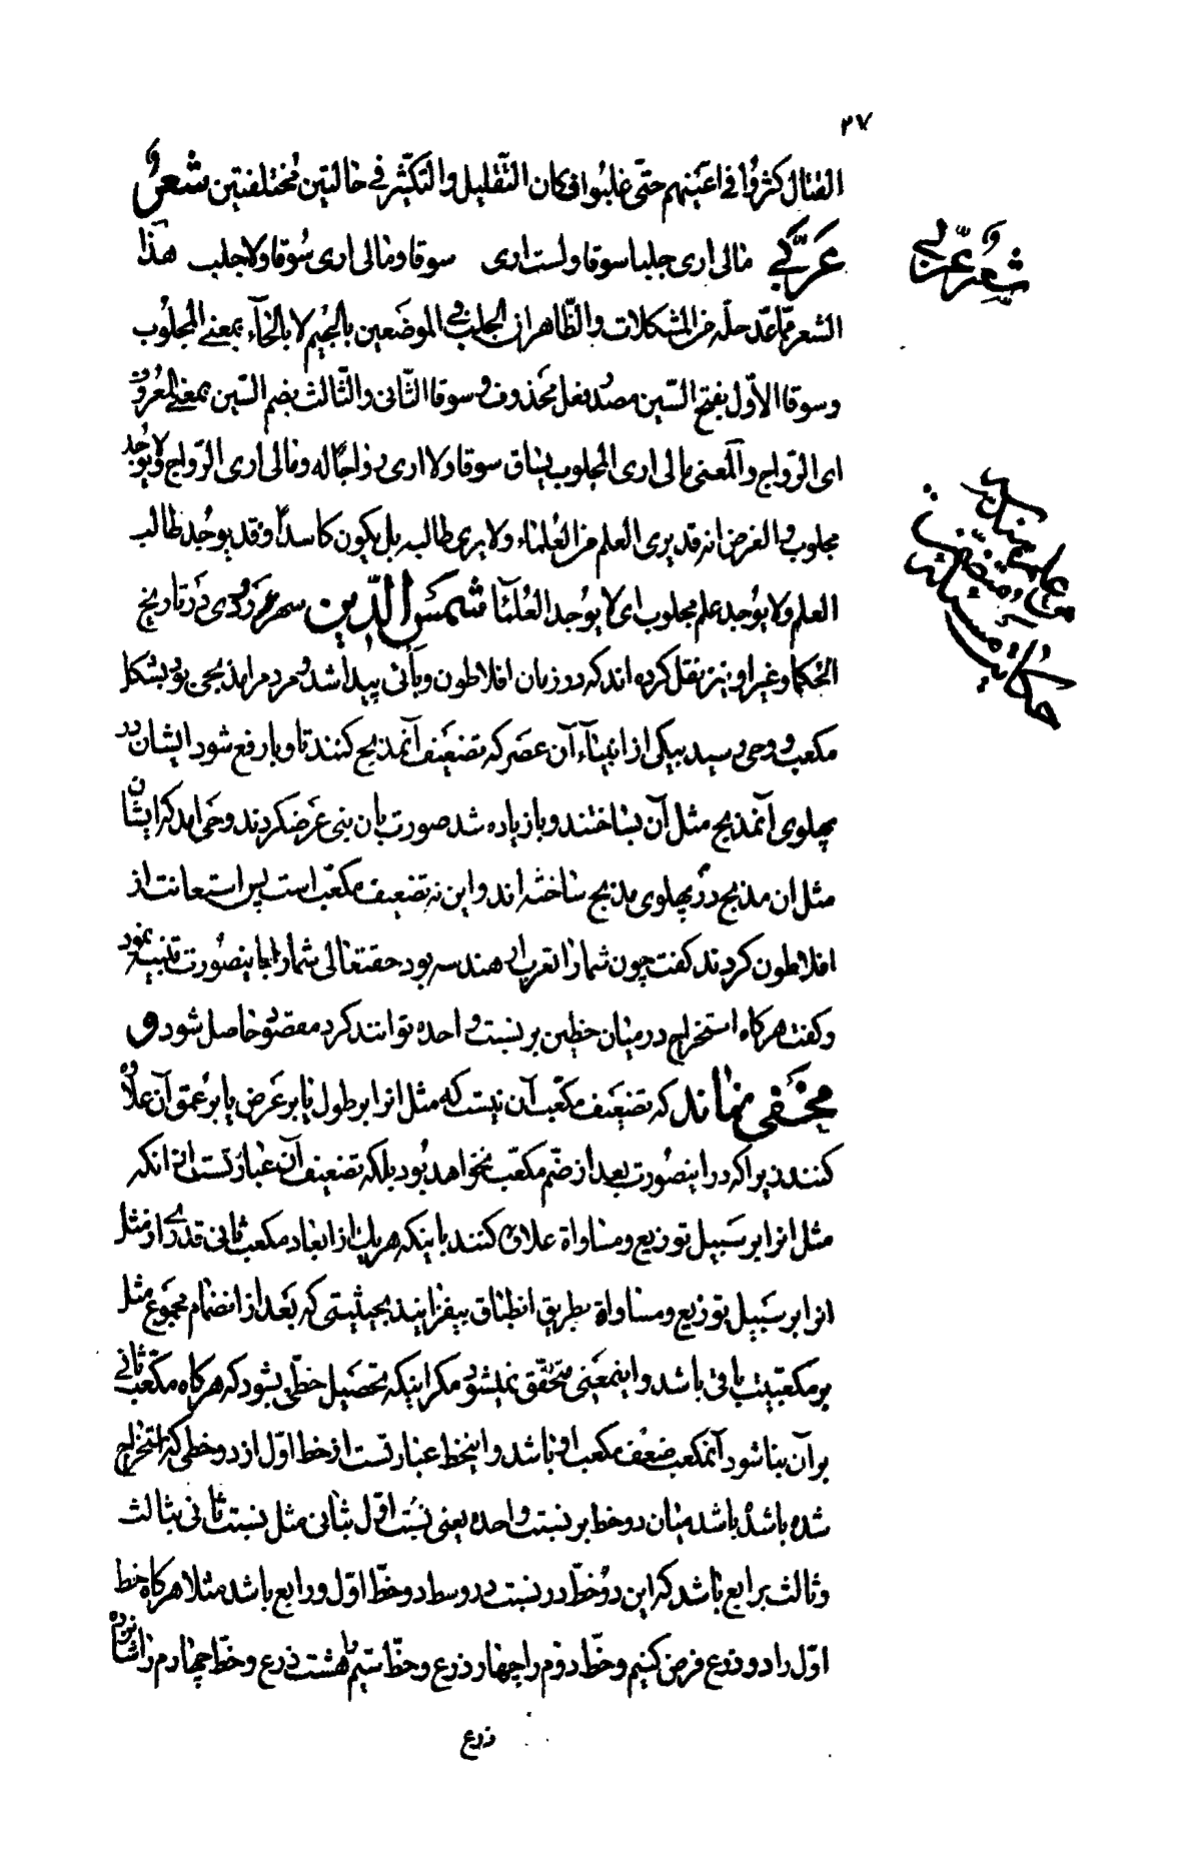 ٢٧
القتال كثروا فى اعينهم حتى غلبوا فكان التقليل والتكثير فى حالتين مختلفتين شعر
عربى مالى ارى جلبا سوقا ولست ارى سوقا ومالى ارى سوقا ولا جلب هذا
شعر عربى
الشعر مما عد حله من المشكلات والظاهر ان الجلب فى الموضعين بالجيم لا بالخاء بمعنى المجلوب
وسوقا الاول بفتح السين مصدر فعل محذوف و سوقا الثانى والثالث بضم السين بمعنى المعروف
اى الرواج والمعنى مالى ارى المجلوب يساق سوقا ولا ارى رواجا له ومالى ارى الرواج ولا يوجد
مجلوب و الغرض انه قد يرى العلم من العلماء ولا يرى طالبه بل يكون كاسدا وقد يوجد طالب
العلم ولا يوجد علم مجلوب اى لا يوجد العلماء شمس الدين سهرزورى در تاريخ
الحكما وغير او نيز نقل كرده اند كه در زمان افلاطون وبائى پيدا شد و مردم را مذبحى بود بشكل
مكعب و وحى رسيد بيكى از انبياء آن عصر كه تضعيف آنمذبح كنند تا وبا رفع شود ايشان در
پهلوى آنمذبح مثل آن بساختند وبا زياده شد صورت بان نبى عرض كردند وحى آمد كه ايشان
مثل ان مذبح در پهلوى مذبح ساخته اند و اين نه تضعيف مكعب است پس استعانت از
افلاطون كردند كفت چون شما را نفرت از هندسه بود حقتعالى شما را باينصورت تنبيه نمود
و كفت هركاه استخراج درميان خطين بر نسبت واحده توانند كرد مقصود حاصل شود و
مخفى نماند كه تضعيف مكعب آن نيست كه مثل انرا بر طول يا بر عرض يا بر عمق آن علاوه
كنند زيرا كه در اينصورت بعد از ضم مكعب نخواهد بود بلكه تضعيف آن عبارتست از انكه
مثل انرا بر سبيل توزيع و مساواة علاوه كنند باينكه هر يك از ابعاد مكعب ثانى قدرى از مثل
انرا بر سبيل توزيع و مساواة بطريق انطباق بيفزايند بحيثيتى كه بعد از انضمام مجموع مثل
بر مكعبيت باقى باشد و اينمعنى متحقق نميشود مكر اينكه تحصيل خطى بشود كه هركاه مكعب ثانى
بر آن بنا شود آنمكعب ضعف مكعب اول باشد و اينخط عبارتست از خط اول از دو خطى كه استخراج
شده باشد باشد ميان دو خط بر نسبت واحده يعنى نسبت اول بثانى مثل نسبت ثانى بثالث
و ثالث برابع باشد كه اين دو خط در نسبت در وسط دو خط اول و رابع باشد مثلا هركاه خط
اول را دو ذرع فرض كنيم و خط دوم را چهار ذرع و خط سيم را هشت ذرع و خط چهارم را شانزده
ذرع